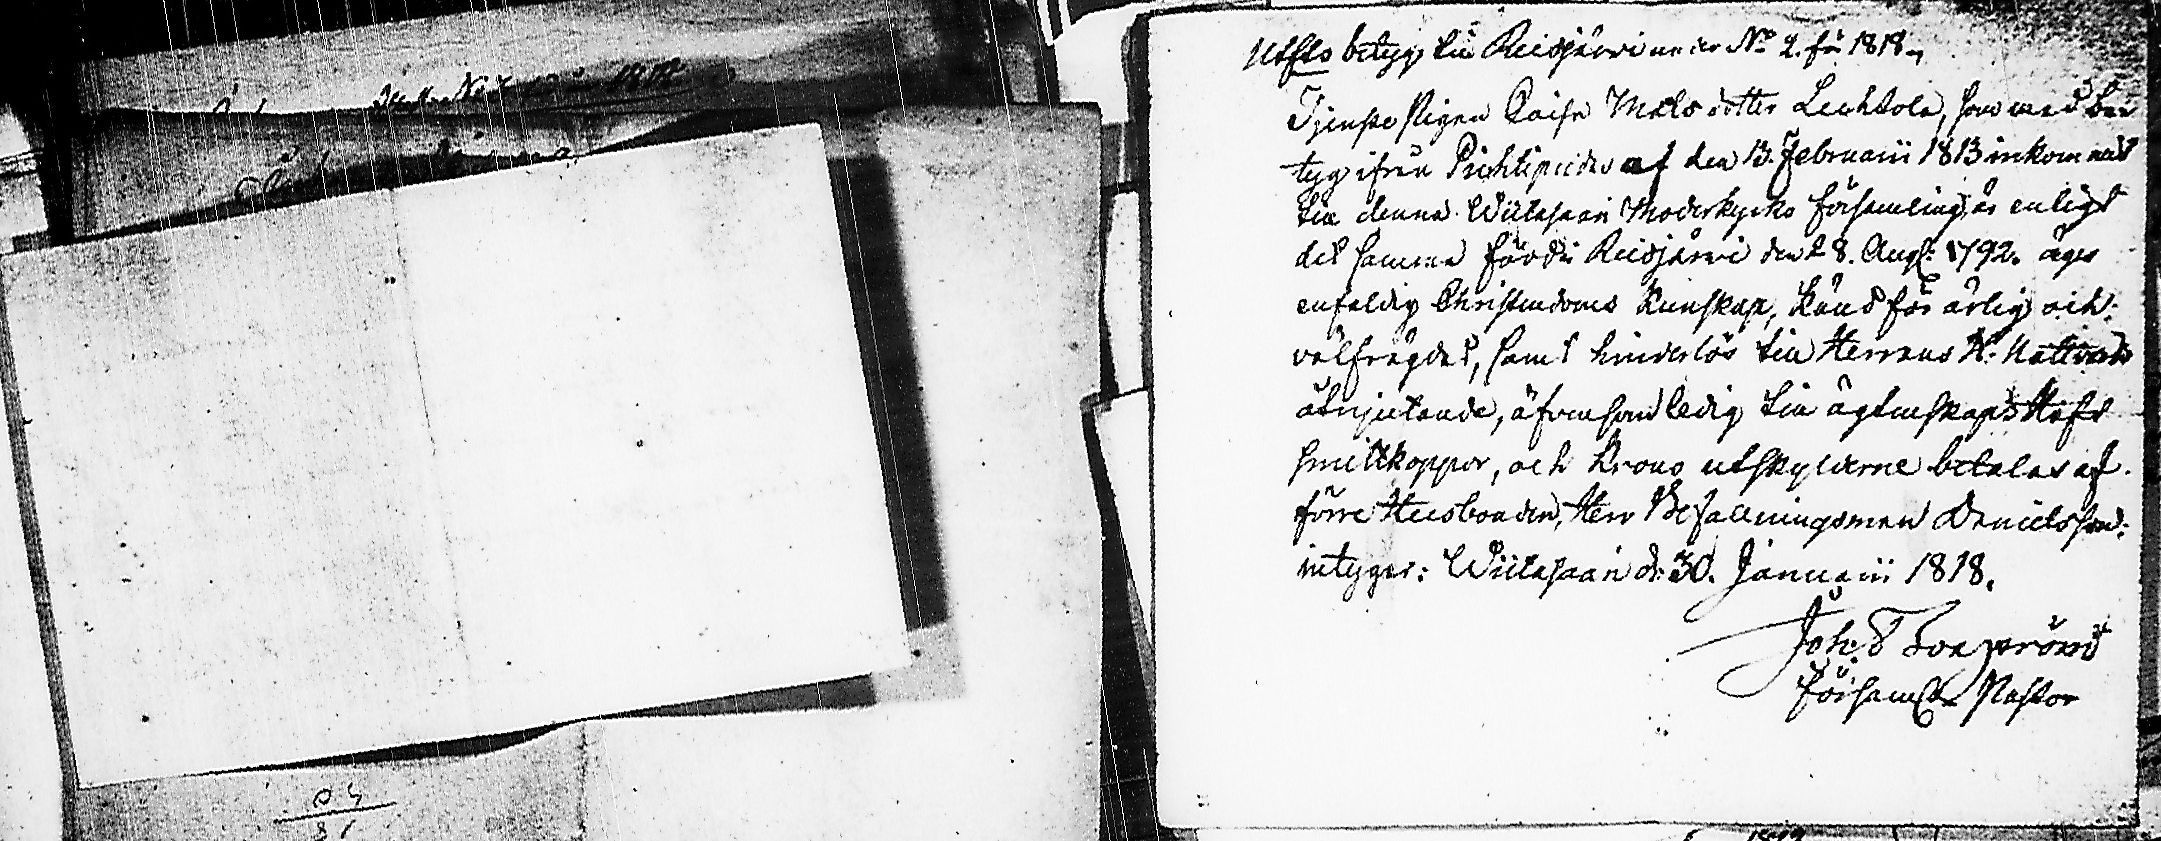 Utflts betyg till Reisjärvi under No 2. för 1818.
Tjenste Pigan Caisa Mats dotter Lechtola, som med be
tyg ifrån Pichtipudas af den 13. Februarii 1813 inkommit
till denna Wiitasaari Moderkyrko församling, är enligt
det samma född i Reisjärvi den 28. Aug: 1792. äger
enfaldig Christendoms Kunskap, känd för ärlig och
välfrägdad, samt hinderlös till Herrans H. Nattvards
åtnjutande, äfvensom ledig till ägtenskap. Haft
smittkoppor, och Krono utskylderne betalas af
förre Husbonden, Herr Befallningsman Danielsson:
intygar: Wiitasaari d: 30. Januarii 1818.
Joh:
Församls Pastor